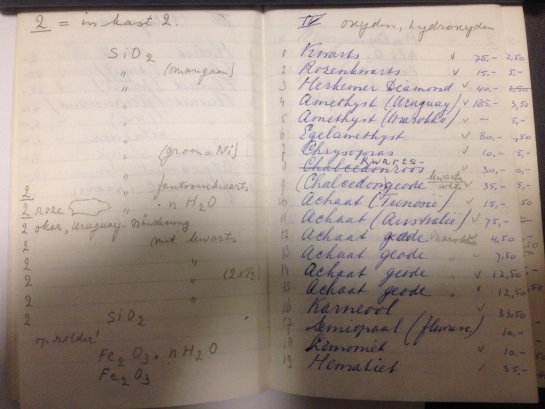 2 = in kast 2.
SiO2
" (mangaan)
"
"
"
"
" (groen = Ni)
"
" fantoomkwarts
2 " . n H2O
2 roze
2 oker, Uruguay-
2 met kwarts
2 "
2 " (2x½)
2 "
2 SiO2
op zolder!
Fe2O3 . n H2O
Fe2O3
IV oxyden, hydroxyden
1 Kwarts v 75,- 2,50
2 Rozenkwarts v 15,- 5,-
3 Herkimer Diamond v 40,- 2,50
4 Amethyst (Uruguay) v 185,- 3,50
5 Amethyst (Marokko) v - 5,-
6 Egelamethyst v 80,- ,50
7 Chrysopras v 10,- 5,-
8 Chalcedonroos Kwarts- v 30,- 0,-
9 Chalcedongeode kwarts v 35,- 5,-
10 Achaat (Tunesië) v 15,- ,50
11 Achaat (Australië) v 75,-
12 Achaat geode Marokko v 4,50
13 Achaat geode " v 7,50
14 Achaat geode " v 12,50
15 Achaat geode " v 12,50
16 Karneool v 33,50
17 Semiopaal v 10,-
18 Limoniet v 10,-
19 Hematiet v 35,-